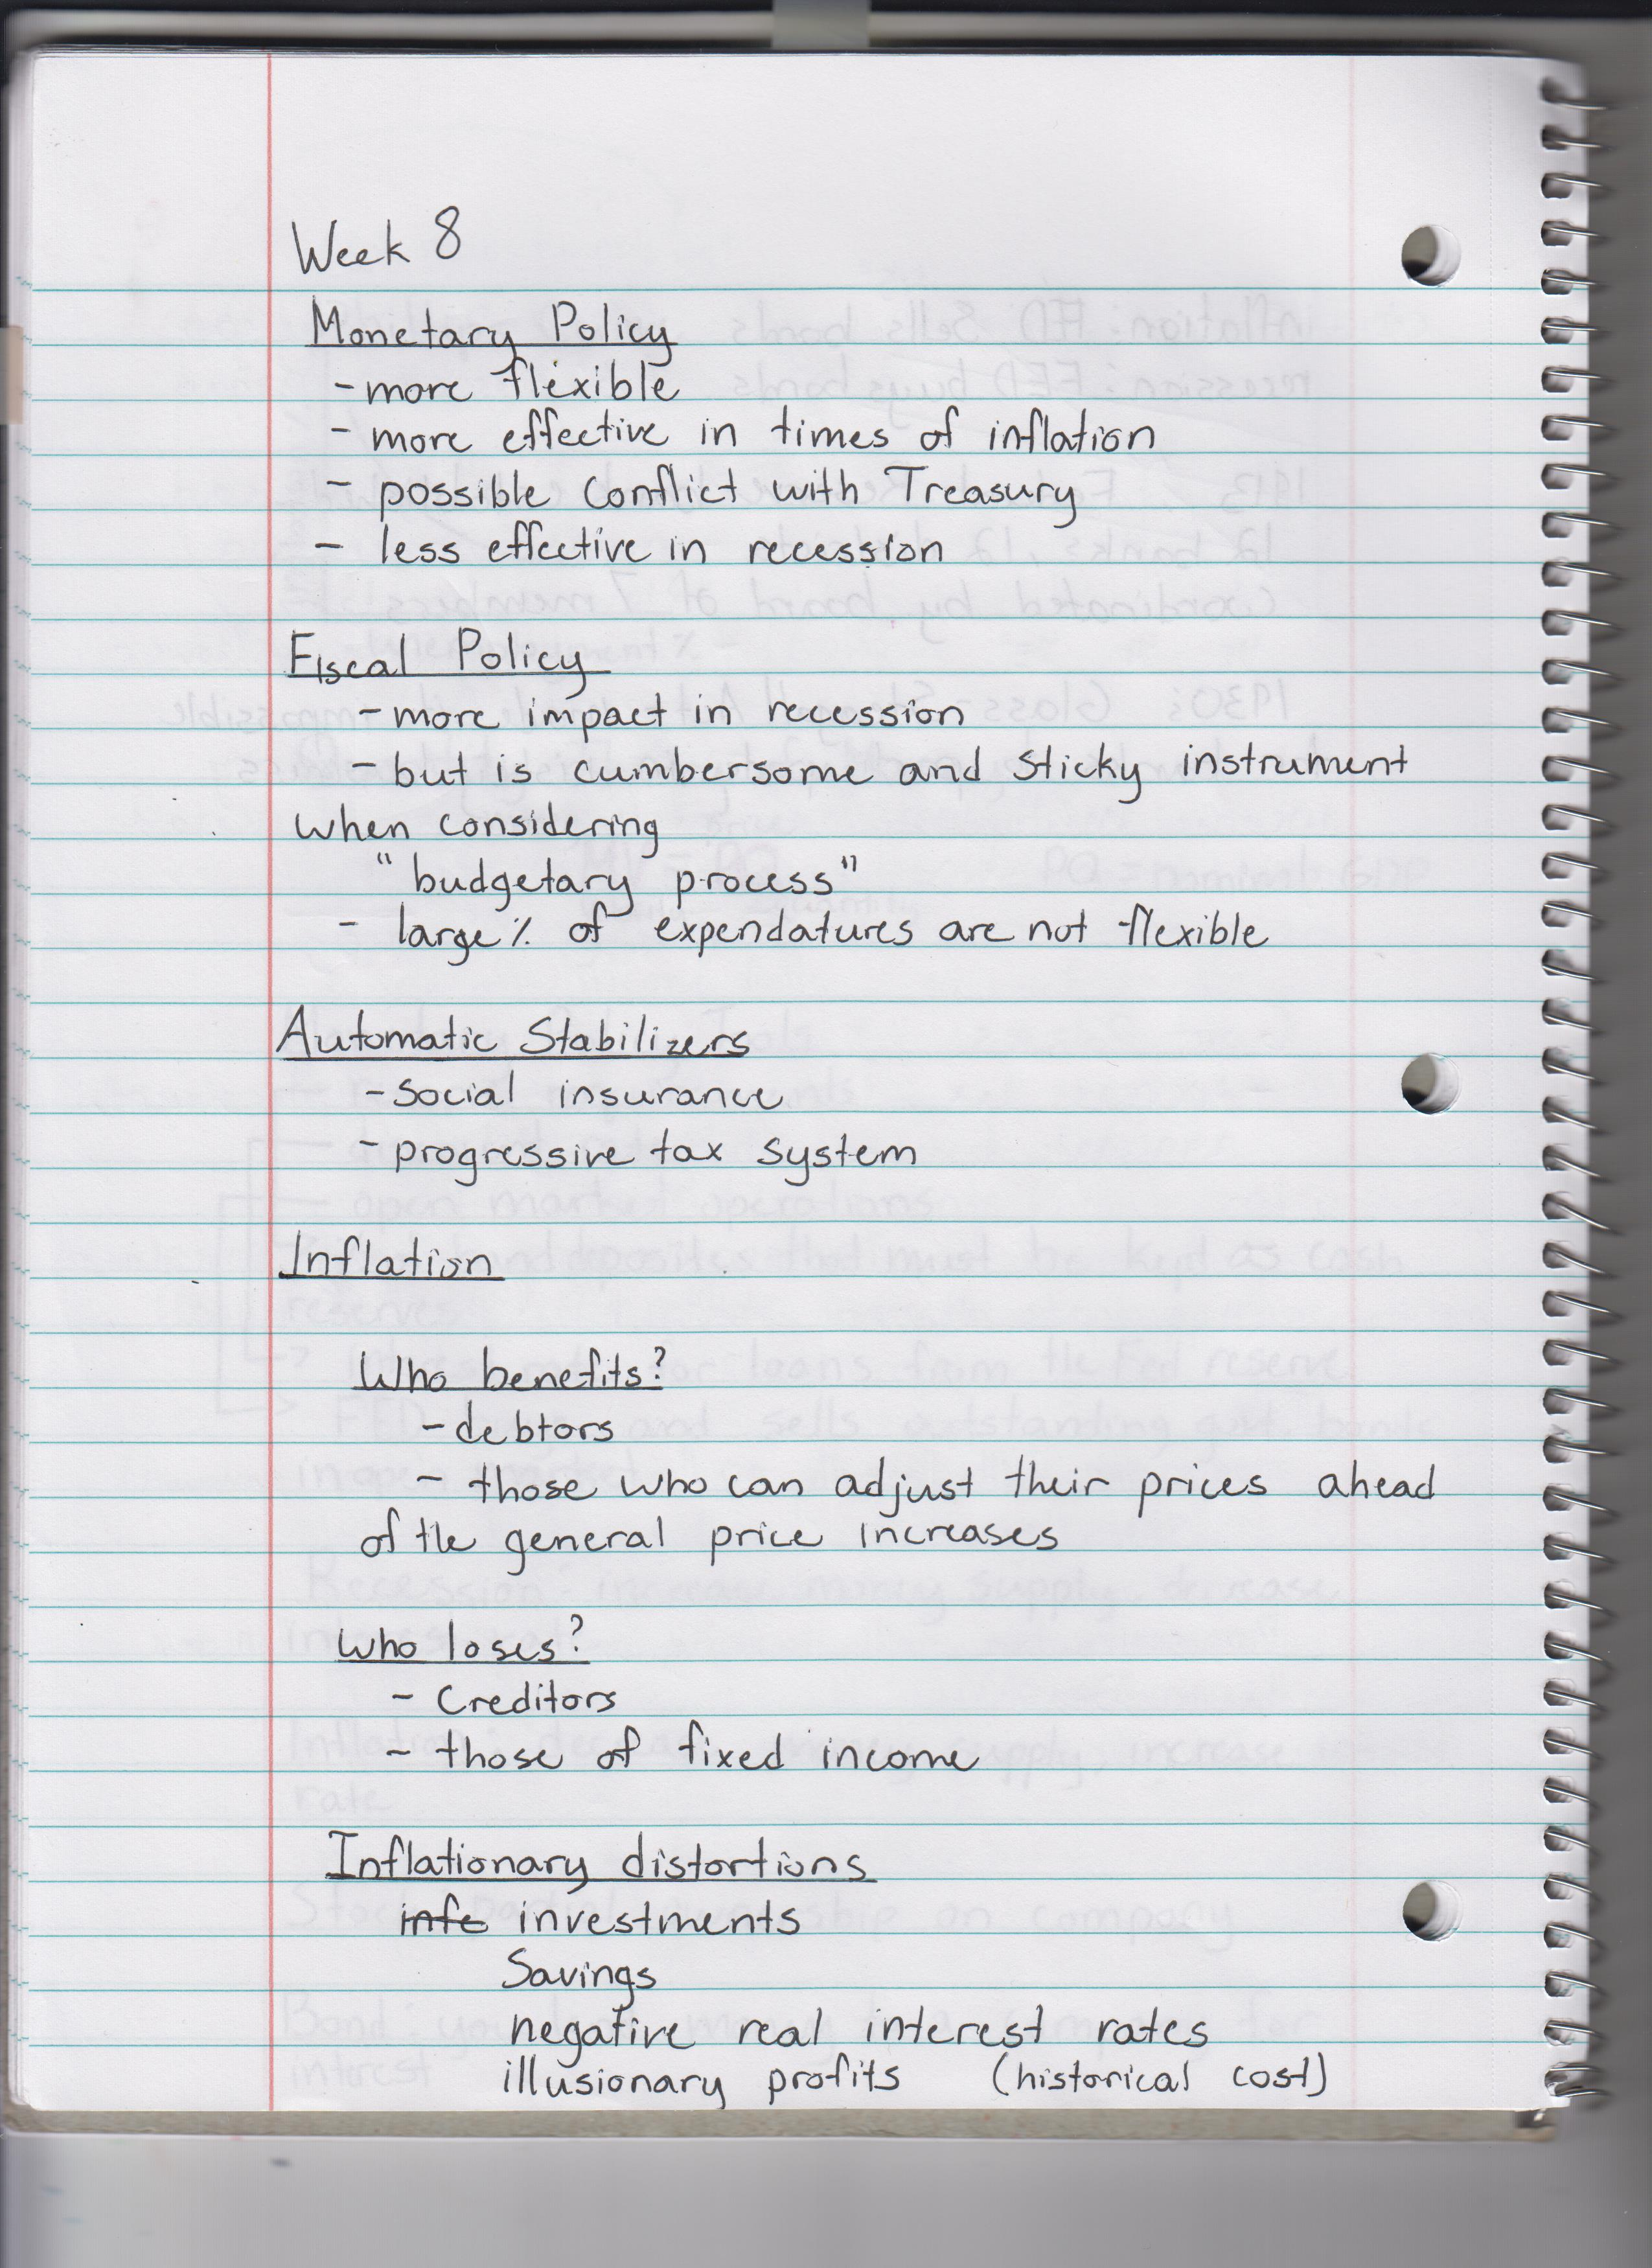 Week 8
Monetary Policy
- more flexible
- more effective in times of inflation
- possible conflict with Treasury
- less effective in recession
Fiscal Policy
- more impact in recession
- but is cumbersome and sticky instrument
when considering
"budgetary process"
- large % of expendatures are not flexible
Automatic Stabilizers
- social insurance
- progressive tax system
Inflation
Who benefits?
- debtors
- those who can adjust their prices ahead
of the general price increases
Who loses?
- Creditors
- those of fixed income
Inflationary distortions
info investments
Savings
negative real interest rates
illusionary profits (historical cost)